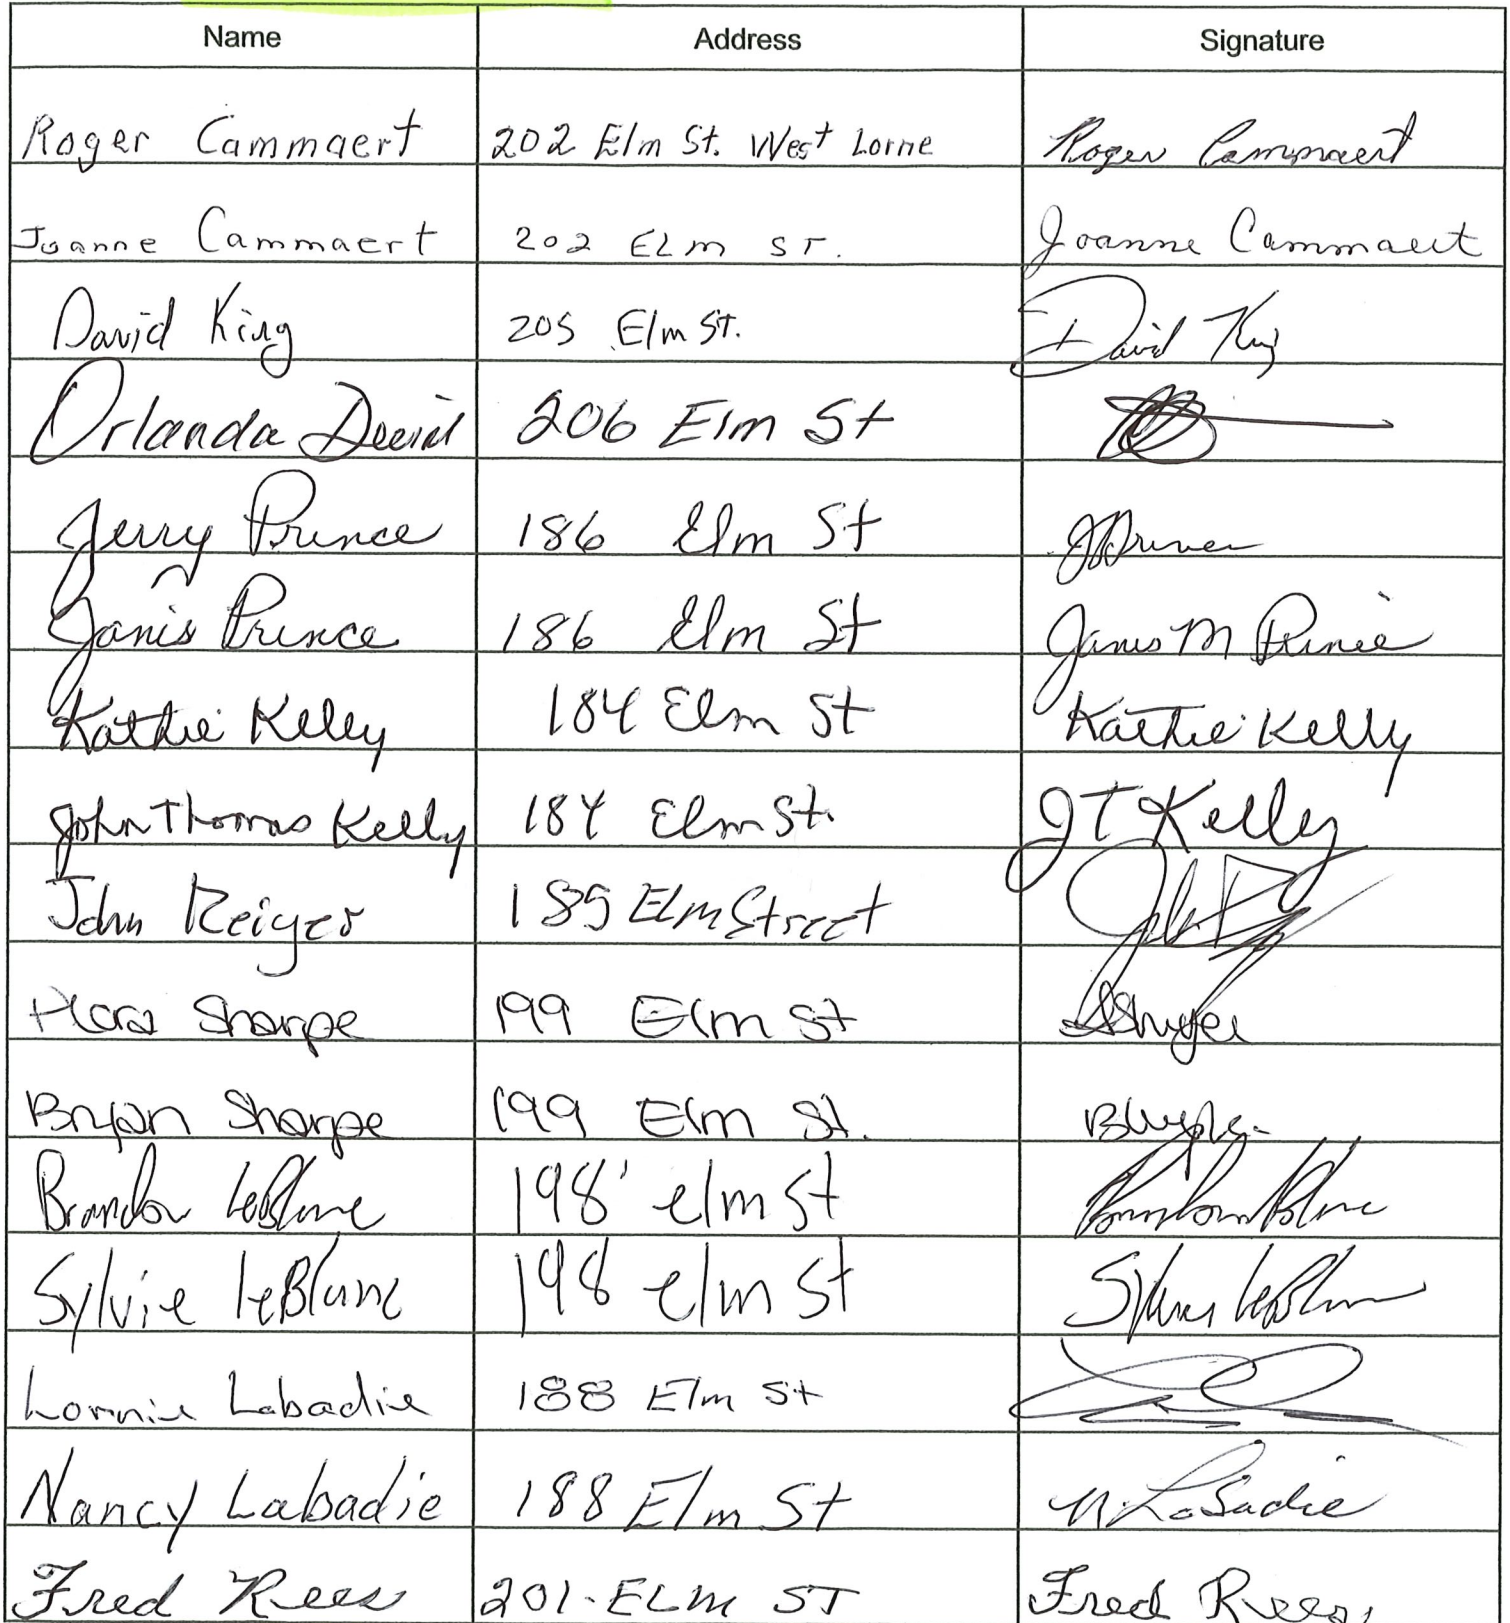 Name Address Signature
Roger Cammaert 202 Elm St. West Lorne Roger Cammaert
Joanne Cammaert 202 ELm ST. Joanne Cammaert
David King 205 Elm St. David King
Orlanda David 206 Elm St
Jerry Prince 186 Elm St JPrince
Janis Prince 186 Elm St Janis M Prince
Kathie Kelly 184 Elm St Kathie Kelly
John Thomas Kelly 184 Elm St. JT Kelly
John Reiger 185 Elm Street
Flora Sharpe 199 Elm St
Bryan Sharpe 199 Elm St.
Brandon LeBlanc 198 elm St
Sylvie LeBlanc 198 elm St Sylvie LeBlanc
Lonnie Labadie 188 Elm St
Nancy Labadie 188 Elm St N. LaBadie
Fred Rees 201 - ELm ST Fred Rees